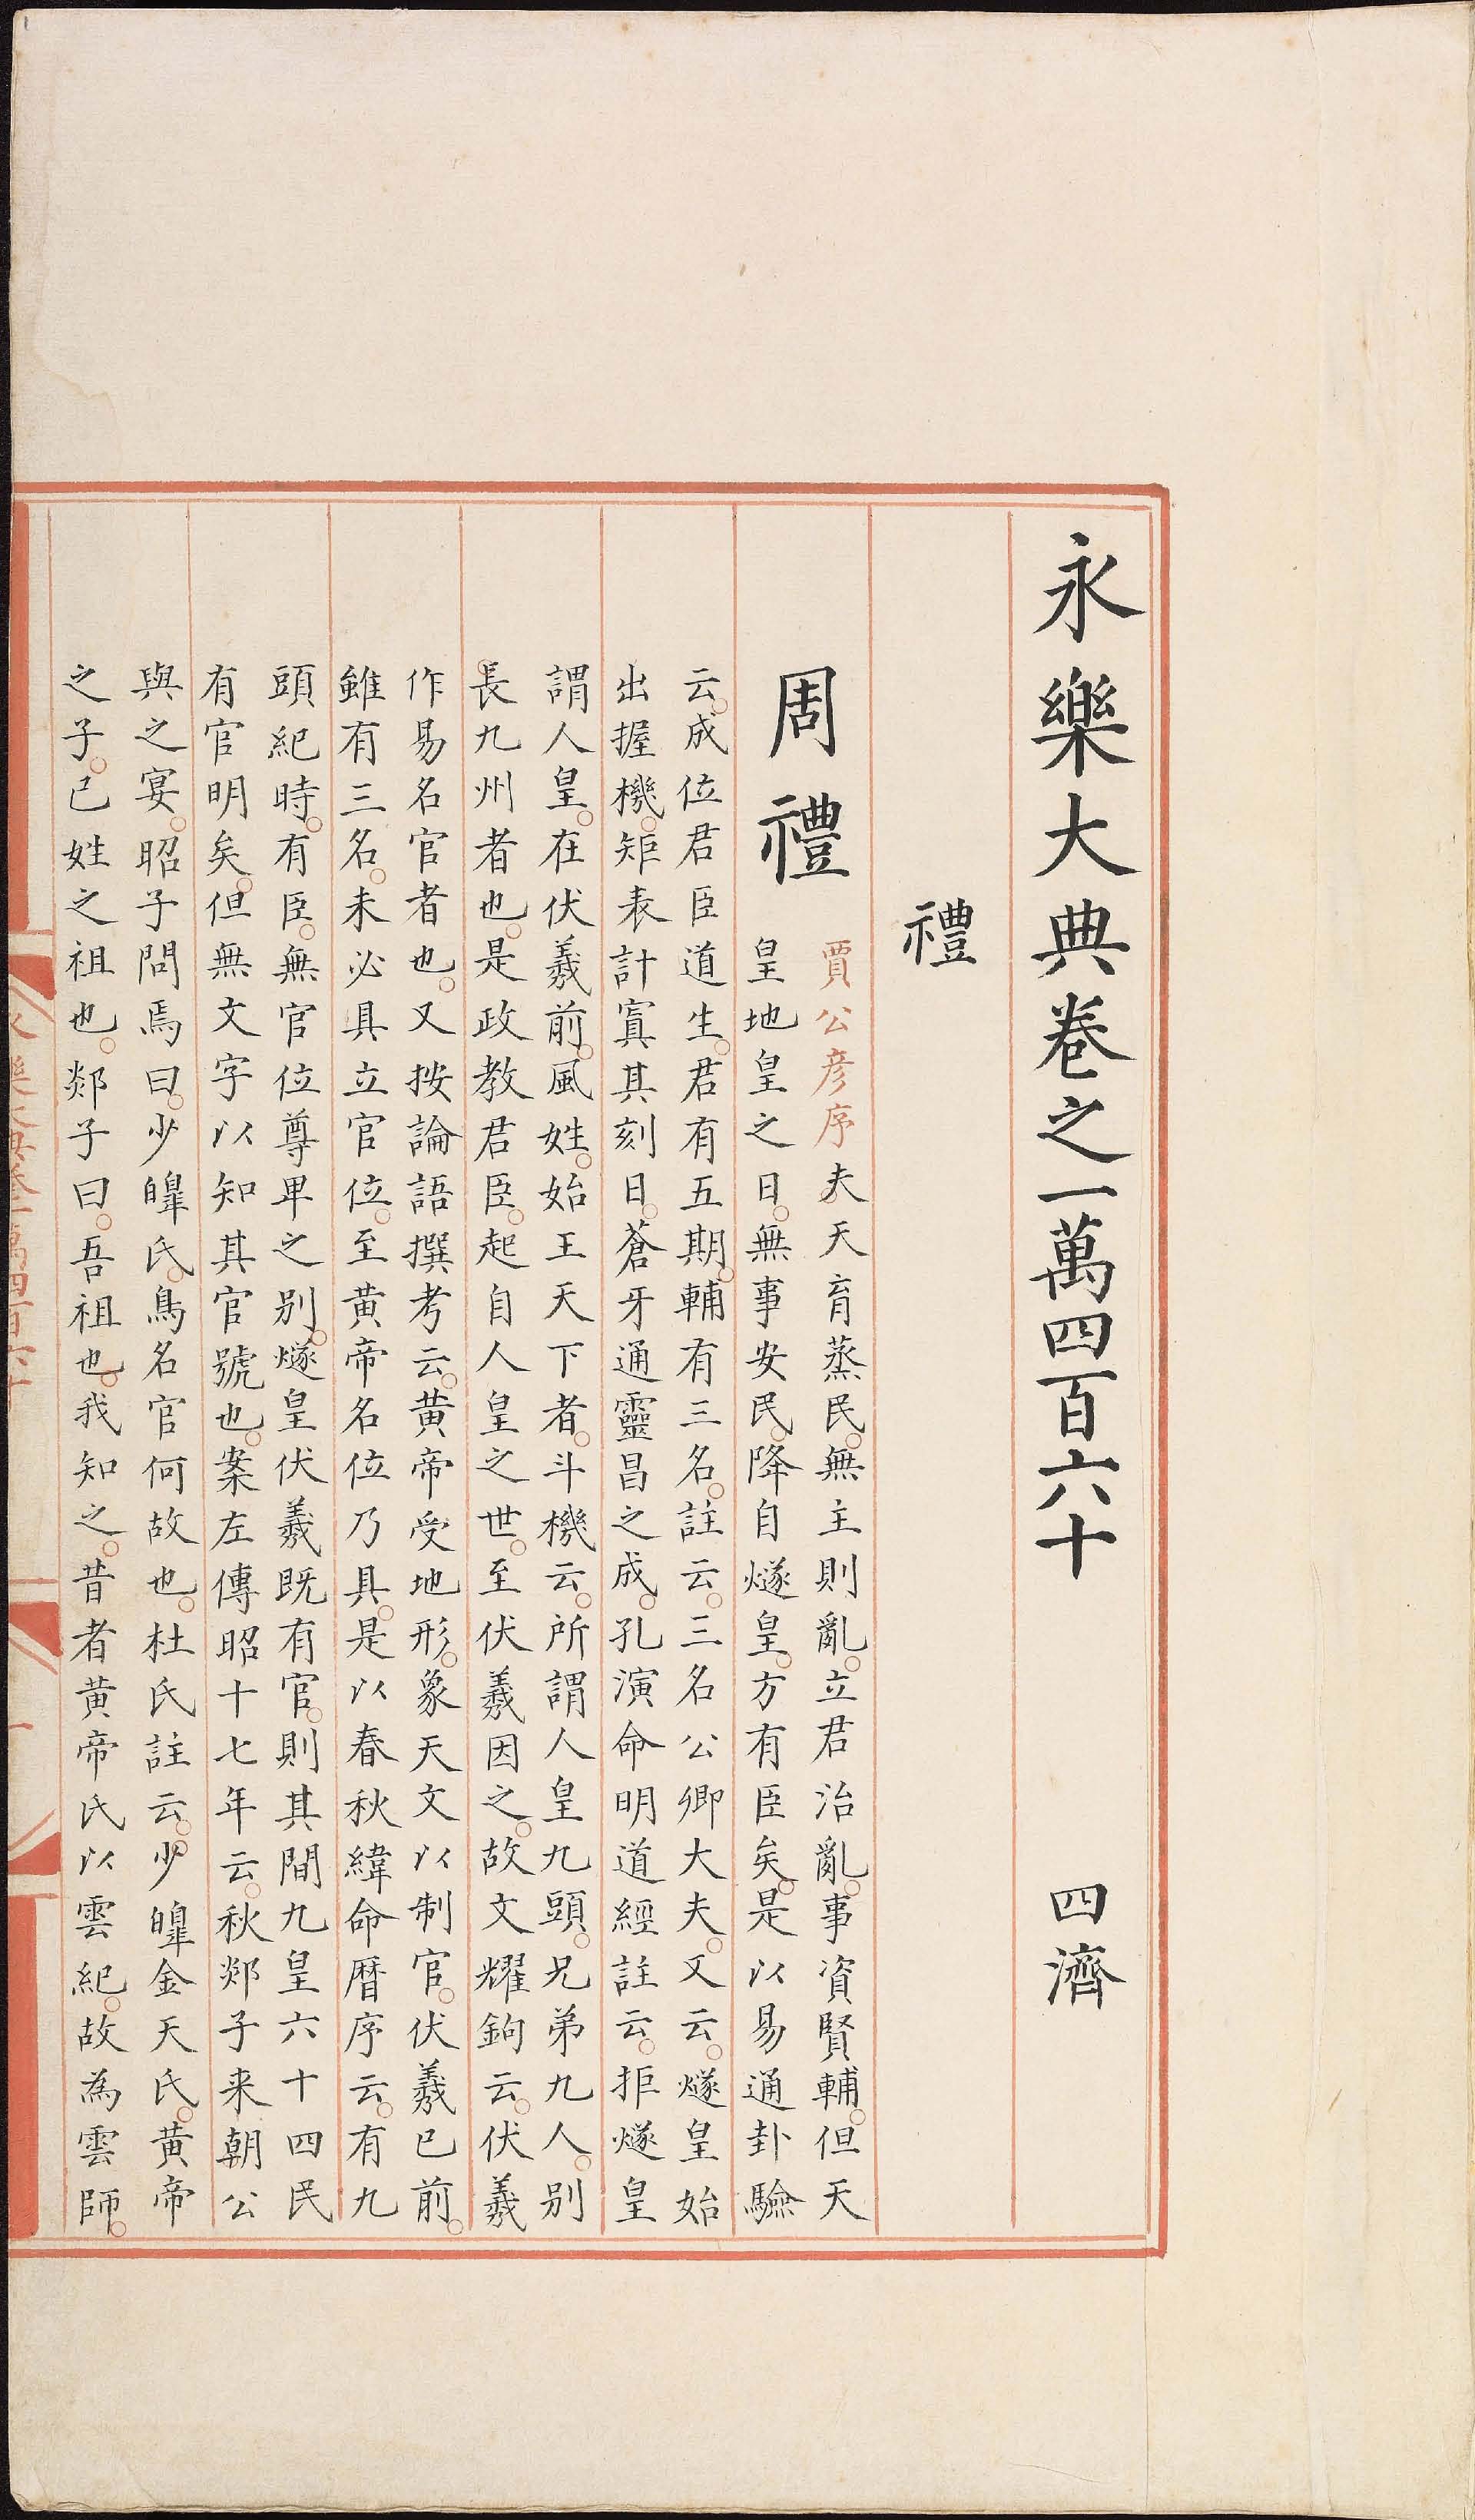 永樂大典卷之一萬四百六十 四濟
禮
周禮
賈公彦序夫天育蒸民無主則亂立君治亂事資賢輔但天
皇地皇之日無事安民降自燧皇方有臣矣是以易通卦驗
云成位君臣道生君有五期輔有三名註云三名公卿大夫又云燧皇始
出握機矩表計寘其刻日蒼牙通靈昌之成孔演命明道經註云拒燧皇
謂人皇在伏羲前風姓始王天下者斗機云所謂人皇九頭兄弟九人别
長九州者也是政教君臣起自人皇之世至伏羲因之故文耀鉤云伏羲
作易名官者也又按論語撰考云黄帝受地形象天文以制官伏羲已前
雖有三名未必具立官位至黄帝名位乃具是以春秋緯命曆序云有九
頭紀時有臣無官位尊卑之别燧皇伏羲既有官則其間九皇六十四民
有官明矣但無文字以知其官號也案左傳昭十七年云秋郯子来朝公
與之宴昭子問焉曰少皥氏鳥名官何故也杜氏註云少皥金天氏黄帝
之子已姓之祖也郯子曰吾祖也我知之昔者黄帝氏以雲紀故為雲師